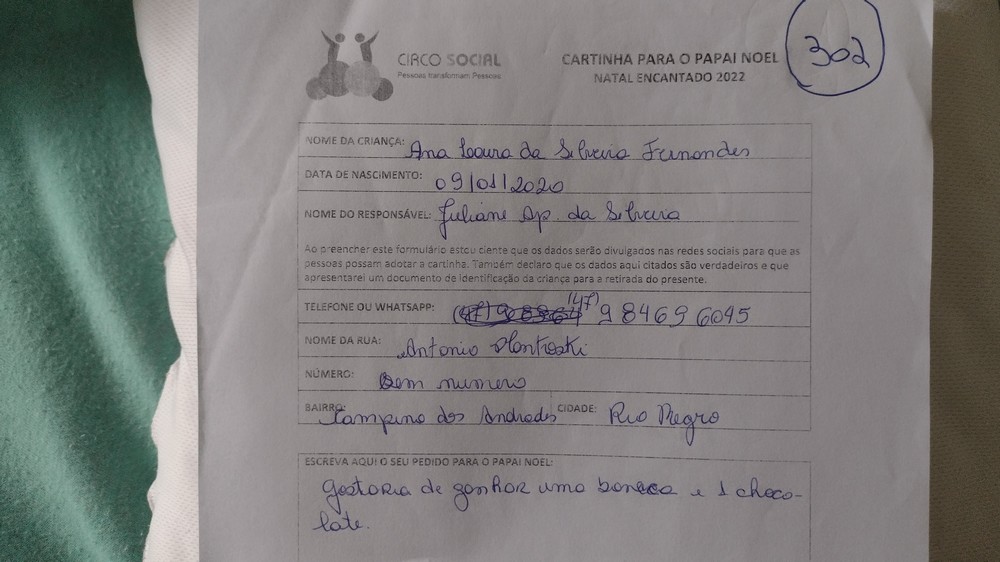 302
CIRCO SOCIAL
Pessoas transformam Pessoas
CARTINHA PARA O PAPAI NOEL
NATAL ENCANTADO 2022
NOME DA CRIANÇA: Ana Laura da Silveira Fernandes
DATA DE NASCIMENTO: 09/01/2020
NOME DO RESPONSÁVEL: Juliane Ap. da Silveira
Ao preencher este formulário estou ciente que os dados serão divulgados nas redes sociais para que as
pessoas possam adotar a cartinha. Também declaro que os dados aqui citados são verdadeiros e que
apresentarei um documento de identificação da criança para a retirada do presente.
TELEFONE OU WHATSAPP: (47) 984696045
NOME DA RUA: Antonio
NÚMERO: Sem numero
BAIRRO: Campina dos Andrades CIDADE: Rio Negro
ESCREVA AQUI O SEU PEDIDO PARA O PAPAI NOEL:
gostaria de ganhar uma boneca e 1 choco-
late.